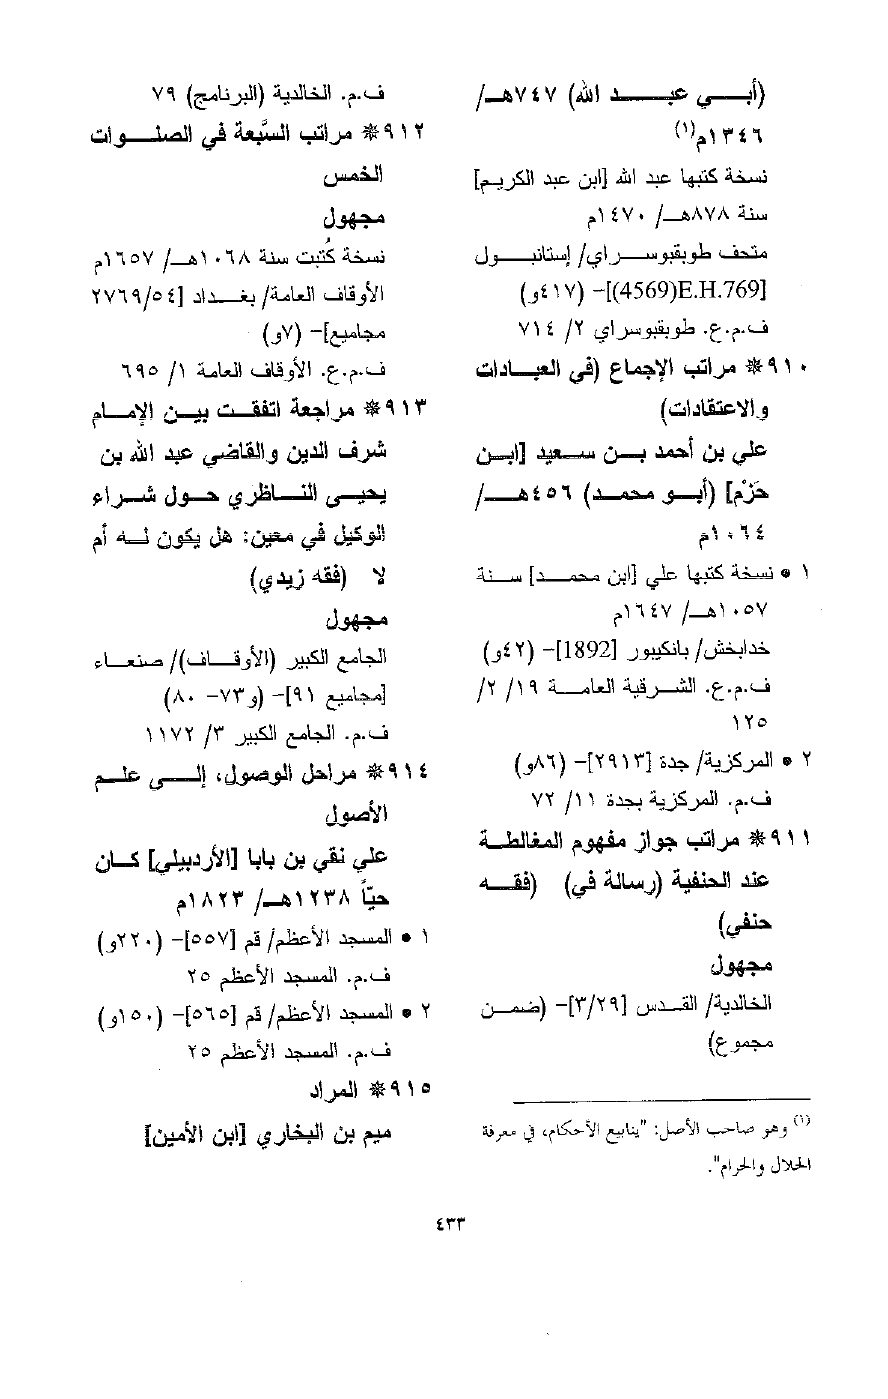 (أبـي عبـد الله) ٧٤٧هـ/
١٣٤٦م(١)
نسخة كتبها عبد الله [ابن عبد الكريم]
سنة ٨٧٨هـ/ ١٤٧٠م
متحف طوبقبوسراي/ إستانبول
[E.H.769(4569)]- (٤١٧و)
ف.م.ع. طوبقبوسراي ٢/ ٧١٤
٩١٠* مراتب الإجماع (في العبادات
والاعتقادات)
علي بن أحمد بن سعيد [ابن
حَزْم] (أبو محمد) ٤٥٦هـ/
١٠٦٤م
١ • نسخة كتبها علي [ابن محمد] سنة
١٠٥٧هـ/ ١٦٤٧م
خدابخش/ بانكيبور [1892]- (٤٢و)
ف.م.ع. الشرقية العامة ١٩/ ٢/
١٢٥
٢ • المركزية/ جدة [٢٩١٣]- (٨٦و)
ف.م. المركزية بجدة ١١/ ٧٢
٩١١* مراتب جواز مفهوم المغالطة
عند الحنفية (رسالة في) (فقه
حنفي)
مجهول
الخالدية/ القدس [٣/٢٩]- (ضمن
مجموع)
(١) وهو صاحب الأصل: "ينابيع الأحكام، في معرفة
الحلال والحرام".
ف.م. الخالدية (البرنامج) ٧٩
٩١٢* مراتب السَّبعة في الصلوات
الخمس
مجهول
نسخة كُتبت سنة ١٠٦٨هـ/ ١٦٥٧م
الأوقاف العامة/ بغداد [٢٧٦٩/٥٤
مجاميع]- (٧و)
ف.م.ع. الأوقاف العامة ١/ ٦٩٥
٩١٣* مراجعة اتفقت بين الإمام
شرف الدين والقاضي عبد الله بن
يحيى الناظري حول شراء
الوكيل في معين: هل يكون له أم
لا (فقه زيدي)
مجهول
الجامع الكبير (الأوقاف)/ صنعاء
[مجاميع ٩١]- (و٧٣- ٨٠)
ف.م. الجامع الكبير ٣/ ١١٧٢
٩١٤* مراحل الوصول، إلى علم
الأصول
علي نقي بن بابا [الأردبيلي] كان
حيّاً ١٢٣٨هـ/ ١٨٢٣م
١ • المسجد الأعظم/ قم [٥٥٧]- (٢٢٠و)
ف.م. المسجد الأعظم ٢٥
٢ • المسجد الأعظم/ قم [٥٦٥]- (١٥٠و)
ف.م. المسجد الأعظم ٢٥
٩١٥* المراد
ميم بن البخاري [ابن الأمين]
٤٣٣